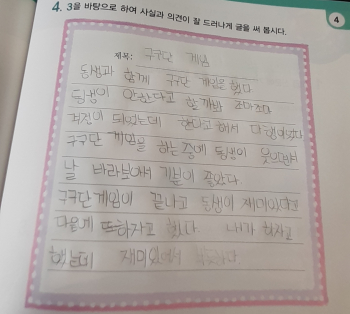 4. 3을 바탕으로 하여 사실과 의견이 잘 드러나게 글을 써 봅시다.
4
제목: 구구단 게임
동생과 함께 구구단 게임을 했다
동생이 안한다고 할까봐 조마조마
걱진이 되었는데 한다고 해서 다행이었다
구구단 게임을 하는 중에 동생이 웃으면서
날 바라보아서 기분이 좋았다.
구구단게임이 끝나고 동생이 재미있다고
다음에 또하자고 했다. 내가 하자고
했는데 재미있어서